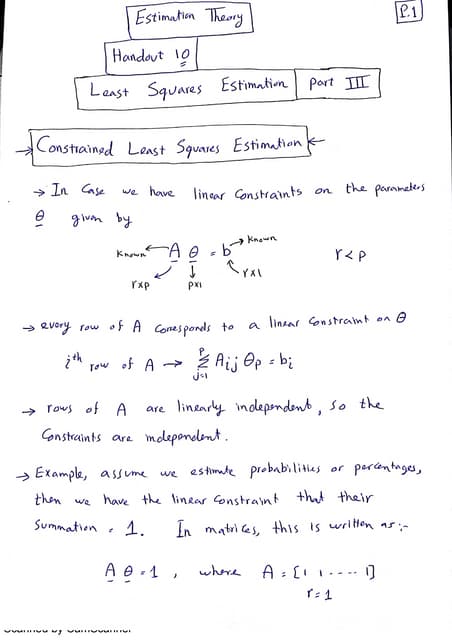 P.1
Estimation Theory
Handout 10
Least Squares Estimation Part III
→ Constrained Least Squares Estimation ←
→ In Case we have linear Constraints on the parameters
θ given by
Known ← A θ = b → Known r<p
rxp px1 rx1
→ every row of A Corresponds to a linear Constraint on θ
ith row of A → Σ_{j=1}^{p} Aij θp = bi
→ rows of A are linearly independent, so the
Constraints are independent.
→ Example, assume we estimate probabilities or percentages,
then we have the linear Constraint that their
Summation = 1. In matrices, this is written as:-
A θ = 1 , where A = [1 1 ---- 1]
r=1